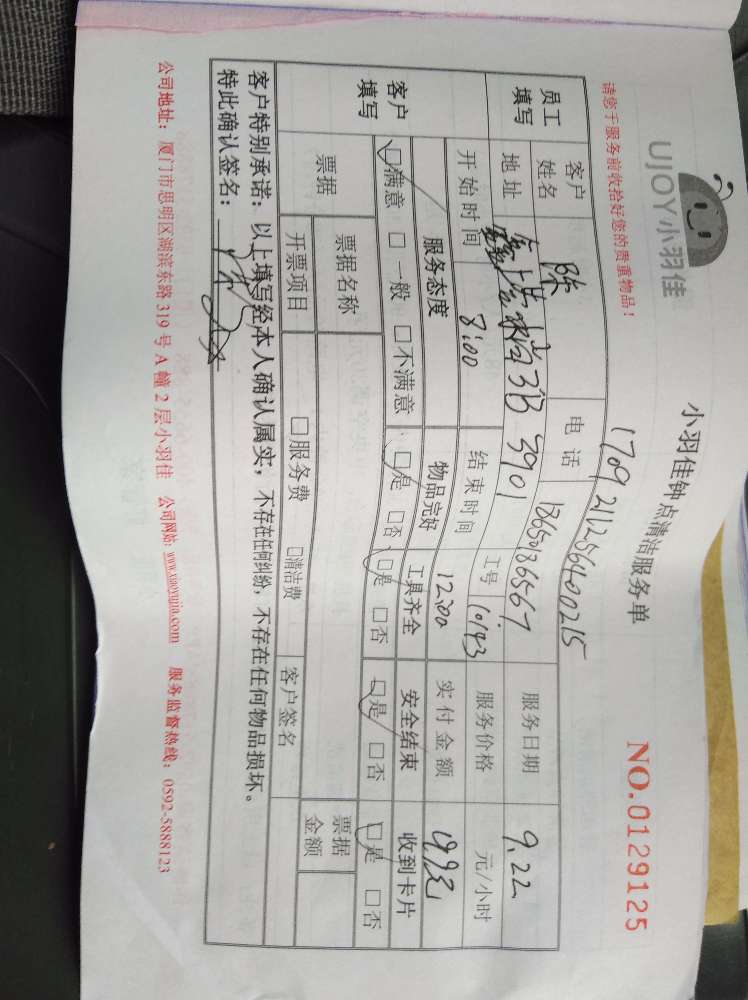 请您于服务前收拾好您的贵重物品！
UJOY小羽佳
小羽佳钟点清洁服务单
NO.0129125
1709211256400215
员工填写
客户姓名 陈 电话 13650136567 服务日期 9.22
地址 3901 工号 10143 服务价格 元/小时
开始时间 8:00 结束时间 12:00 实付金额
客户填写
服务态度 物品完好 工具齐全 安全结束 收到卡片
□满意 □一般 □不满意 □是 □否 □是 □否 □是 □否 □是 □否
票据
票据名称
票据金额
开票项目 □服务费 □清洁费 客户签名
客户特别承诺：以上填写经本人确认属实，不存在任何纠纷，不存在任何物品损坏。
特此确认签名：
公司地址：厦门市思明区湖滨东路 319 号 A 幢 2 层小羽佳 公司网站：www.xiaoyujia.com 服务监督热线：0592-5888123